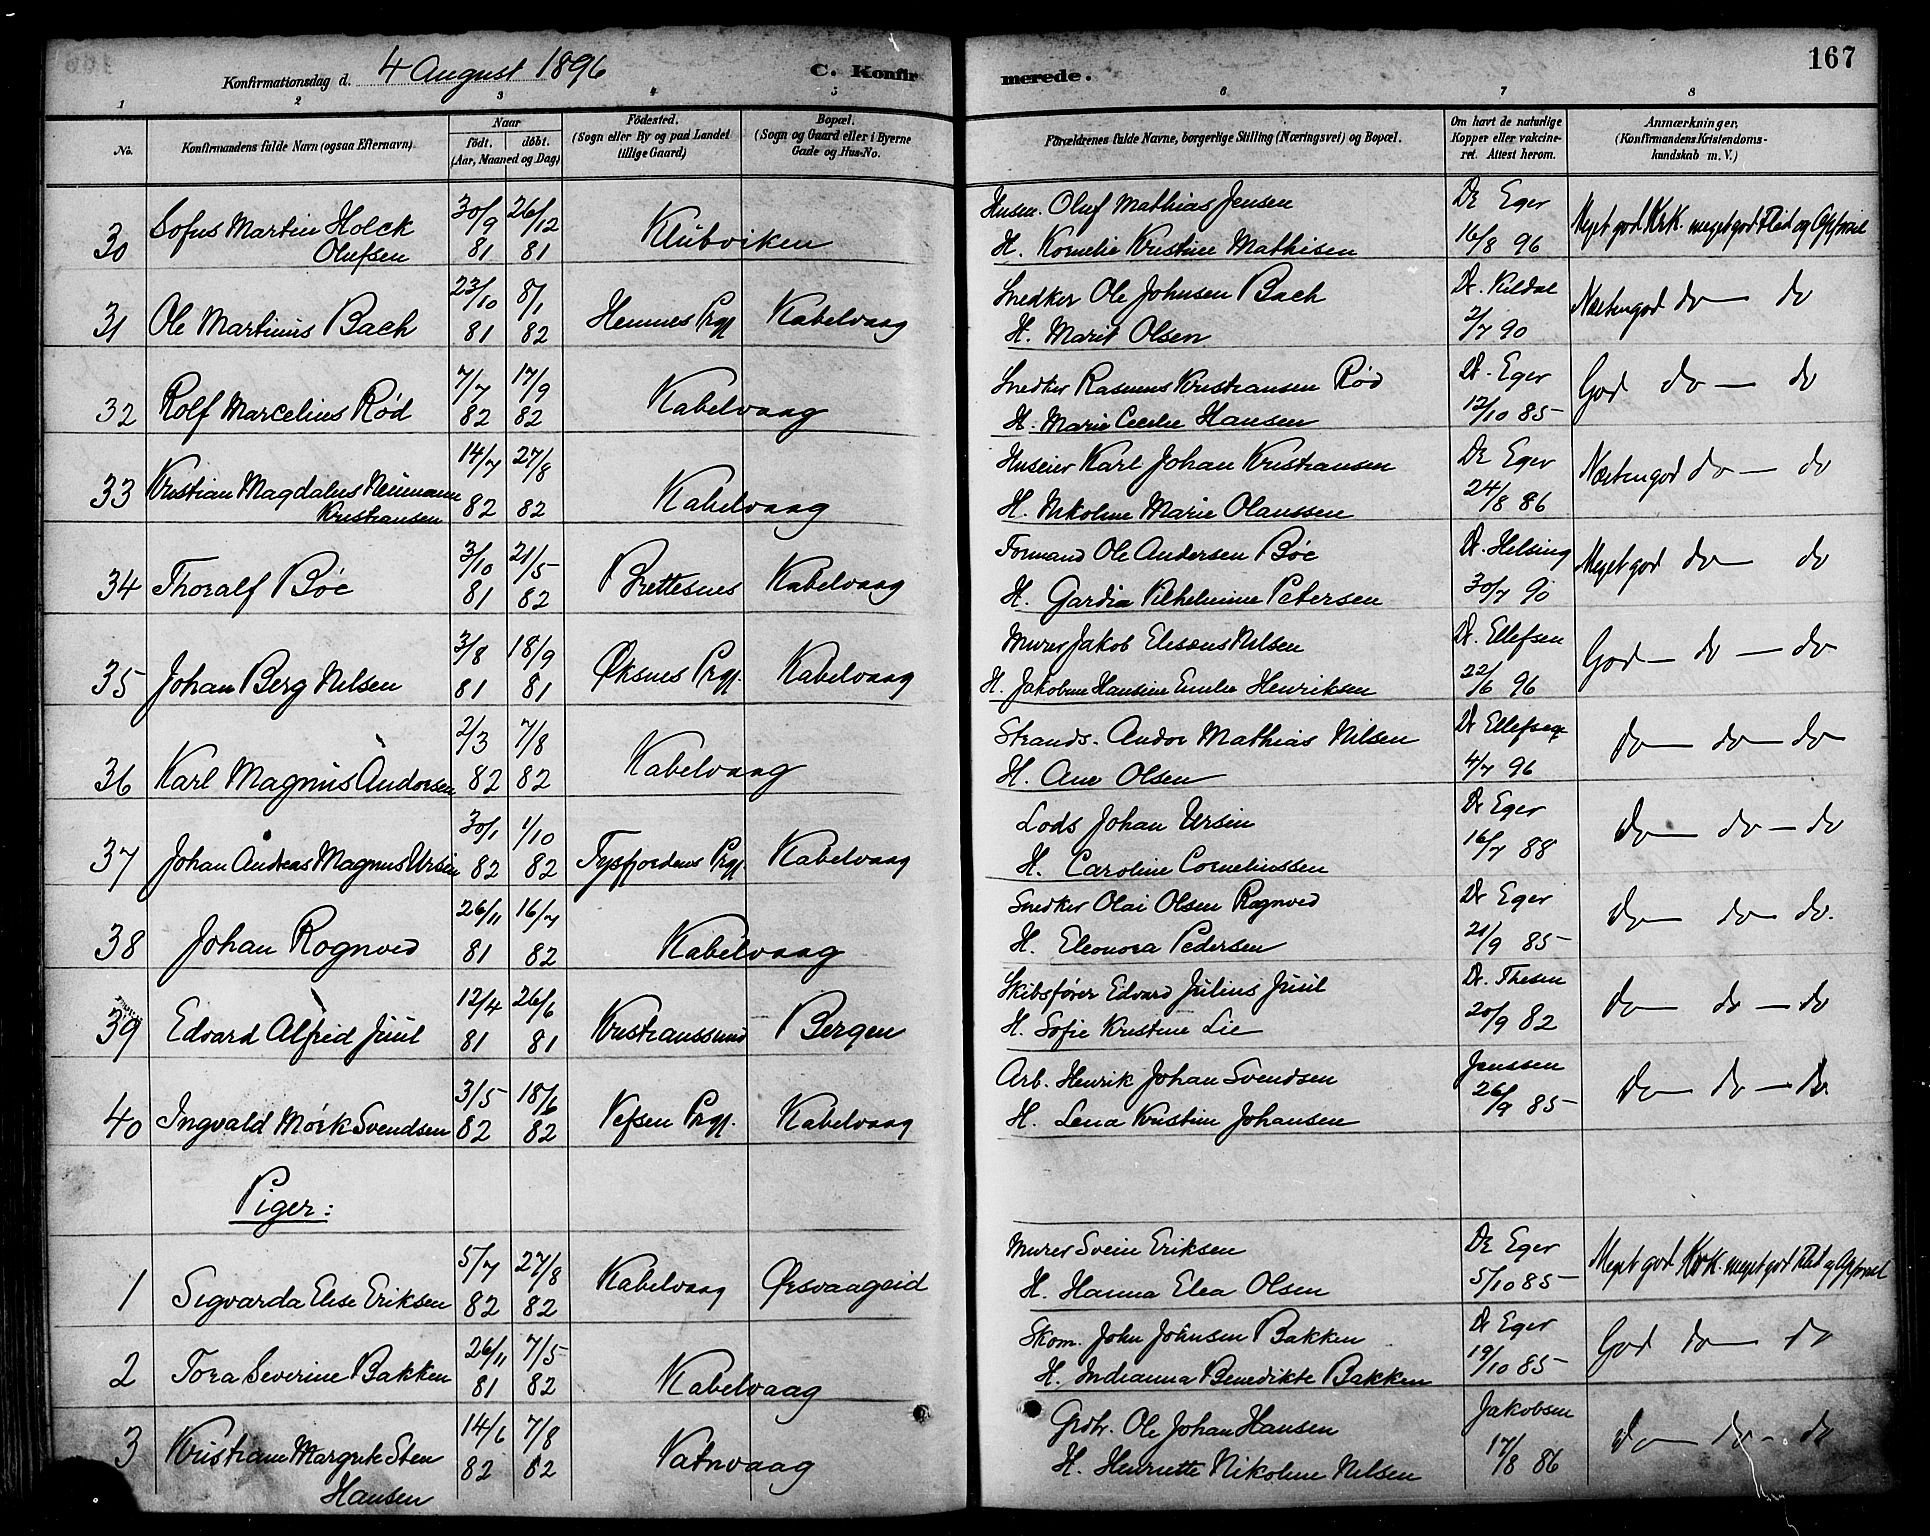 167
Konfirmationsdag d. 4 August 1896 C. Konfirmerede.
1 2 3 4 5 6 7 8
No. Konfirmandens fulde Navn (ogsaa Efternavn). Naar født. døbt. (Aar, Maaned og Dag) Fødested. (Sogn eller By og paa Landet tillige Gaard) Bopæl. (Sogn og Gaard eller i Byerne Gade og Hus-No. Forældrenes fulde Navne, borgerlige Stilling (Næringsvei) og Bopæl. Om havt de naturlige Kopper eller vakcineret. Attest herom. Anmærkninger, (Konfirmandens Kristendomskundskab m. V.)
30 Sofus Martin Holck Olufsen 30/9 81 26/12 81 Klubviken Husm. Oluf Mathias Jensen Dr Eger
H. Kornelie Kristine Mathisen 16/8 96 Meget god Krk. meget god Flid og Opførsel
31 Ole Martinus Bach 23/10 81 8/1 82 Hemnes Prgj. Kabelvaag Snedker Ole Johnsen Bach Dr. Kildal
H. Marit Olsen 2/7 90 Næsten god do — do
32 Rolf Marcelius Rød 7/7 82 17/9 82 Kabelvaag Snedker Rasmus Kristiansen Rød Dr. Eger
H. Marie Cecilie Hansen 12/10 85 God do — do
33 Kristian Magdalus Neumann Kristiansen 14/7 82 27/8 82 Kabelvaag Huseier Karl Johan Kristiansen Dr Eger
H. Nikoline Marie Olaussen 24/8 86 Næsten god do — do
34 Thoralf Bøe 3/10 81 21/5 82 Brettesnes Kabelvaag Formand Ole Andersen Bøe Dr. Helsing
H. Gardia Vilhelmine Petersen 30/7 90 Meget god do — do
35 Johan Berg Nilsen 3/8 81 18/9 81 Øksnes Prgj. Kabelvaag Murer Jakob Elisæus Nilsen Dr. Ellefsen
H. Jakobine Hansine Emilie Henriksen 22/6 96 God — do — do
36 Karl Magnus Andorsen 2/3 82 7/8 82 Kabelvaag Strands. Andor Mathias Nilsen Dr Ellefsen
H. Ane Olsen 4/7 96 do — do — do
37 Johan Andreas Magnus Ursin 30/1 82 1/10 82 Tysfjordens Prgj. Kabelvaag Lods Johan Ursin Dr Eger
H. Caroline Corneliussen 16/7 88 do — do — do
38 Johan Rognved 26/11 81 16/7 82 Kabelvaag Snedker Olai Olsen Rognved Dr Eger
H. Eleonora Pedersen 21/9 85 do — do — do.
39 Edvard Alfred Juul 12/4 81 26/6 81 Kristianssund Bergen Skibsfører Edvard Julius Juul Dr. Thesen
H. Sofie Kristine Lie 20/9 82 do — do — do
40 Ingvald Mørk Svendsen 3/5 82 18/6 82 Vefsen Prgj. Kabelvaag Arb. Henrik Johan Svendsen Janssen
H. Lena Kristine Johansen 26/9 85 do — do — do.
Piger:
1 Sigvarda Elise Eriksen 5/7 82 27/8 82 Kabelvaag Ørsvaageid Murer Svein Eriksen Dr Eger
H. Hanna Elea Olsen 5/10 85 Meget god Krk. meget god Flid og Opførsel
2 Tora Severine Bakken 26/11 81 7/5 82 Kabelvaag Skom. John Johnsen Bakken Dr Eger
H. Indianna Benedikte Bakken 19/10 85 God do — do
3 Kristiane Margrete Sten Hansen 14/6 82 7/8 82 Vatnvaag Grdbr. Ole Johan Hansen Jakobsen
H. Henriette Nikoline Nilsen 17/8 86 do — do — do